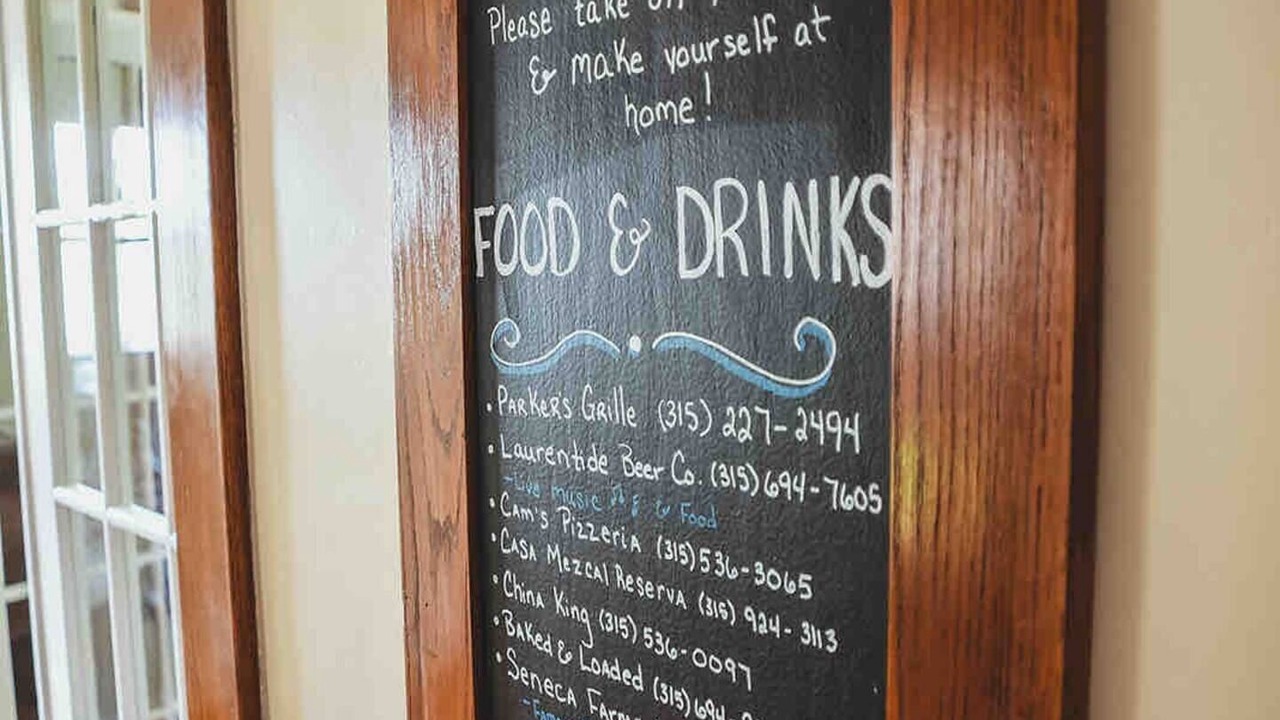 Please take
& make yourself at
home!
FOOD & DRINKS
• Parker's Grille (315) 227-2494
• Laurentide Beer Co. (315) 694-7605
-Live music & Food
• Cam's Pizzeria (315) 536-3065
• Casa Mezcal Reserva (315) 924-3113
• China King (315) 536-0097
• Baked & Loaded (315) 694-
• Seneca